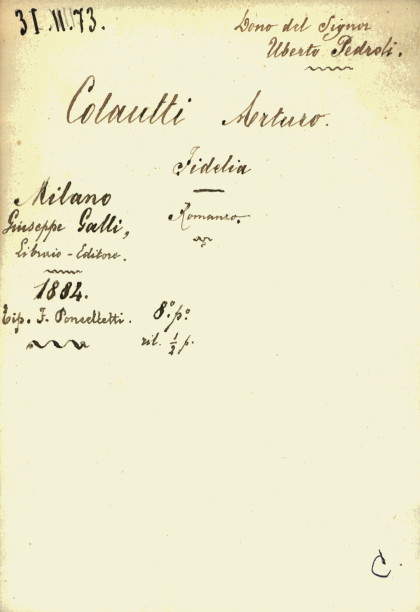 31.II.73.
Dono del Signor
Uberto Pedroli.
Colautti Arturo.
Fidelia
Romanzo.
Milano
Giuseppe Galli,
Libraio-Editore.
1884.
Tip. F. Poncelletti.
8.° p.°
ril. ½ p.
C.